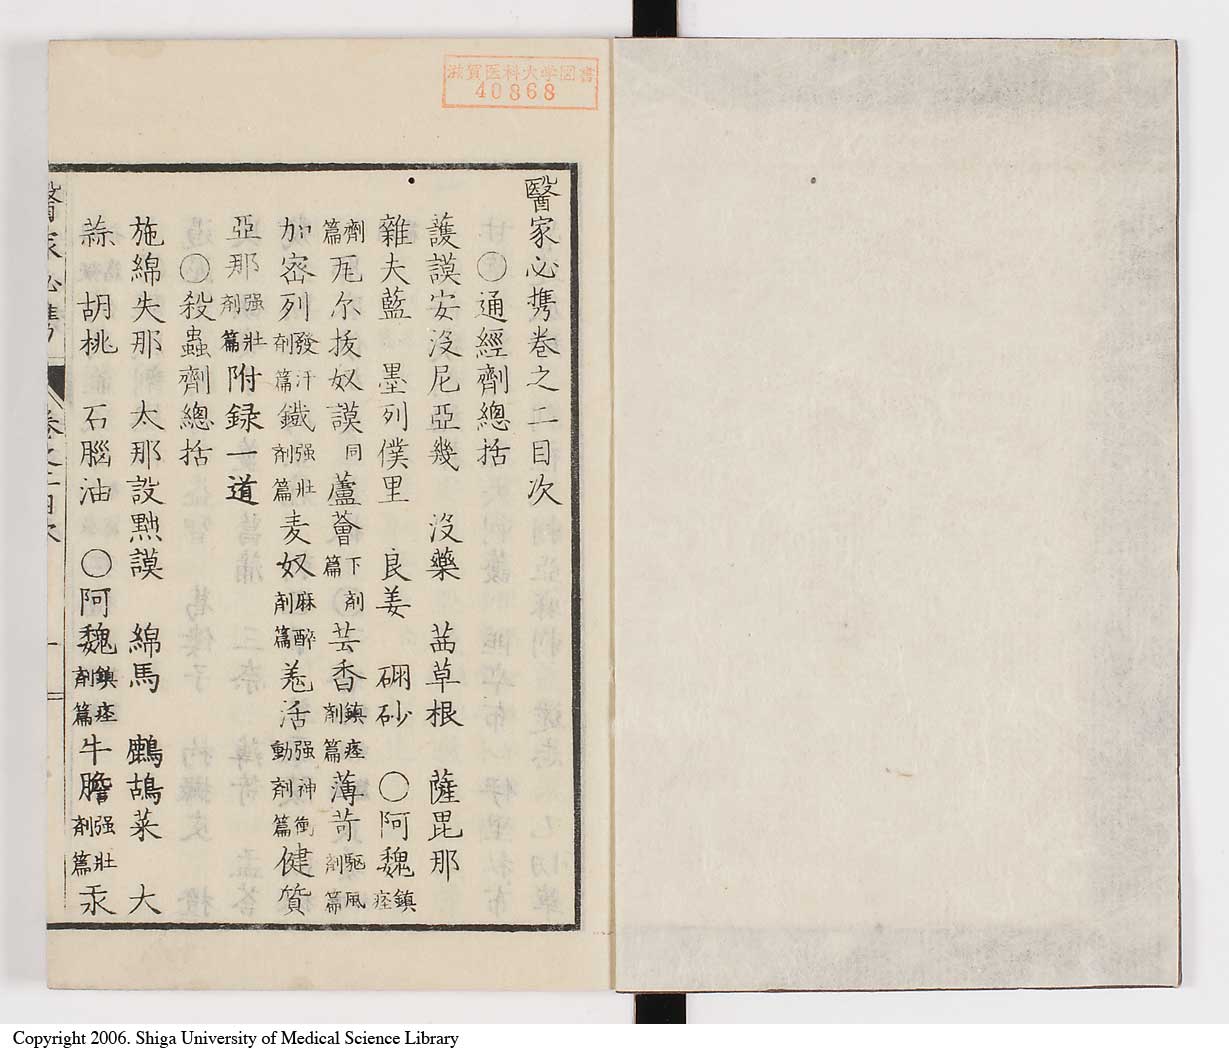 滋賀医科大学図書
40868
醫家必携巻之二目次
〇通經劑總括
護謨安没尼亞幾　没藥　茜草根　薩毘那
雜夫藍　墨列僕里　良姜　硼砂　〇阿魏鎮痙
劑篇 厄尓抜奴謨同 蘆薈下劑篇 芸香鎮痙劑篇 薄荷驅風劑篇
加密列發汗劑篇 鐵强壯劑篇 麦奴麻醉劑篇 羌活强神衝動劑篇 健質
亞那强壯劑篇 附録一道
〇殺蟲劑總括
施綿失那　太那設㸃謨　綿馬　鷓鴣菜　大
蒜　胡桃　石腦油　〇阿魏鎮痙劑篇 牛膽强壯劑篇 汞
醫家必携　巻之二目次　一
Copyright 2006. Shiga University of Medical Science Library